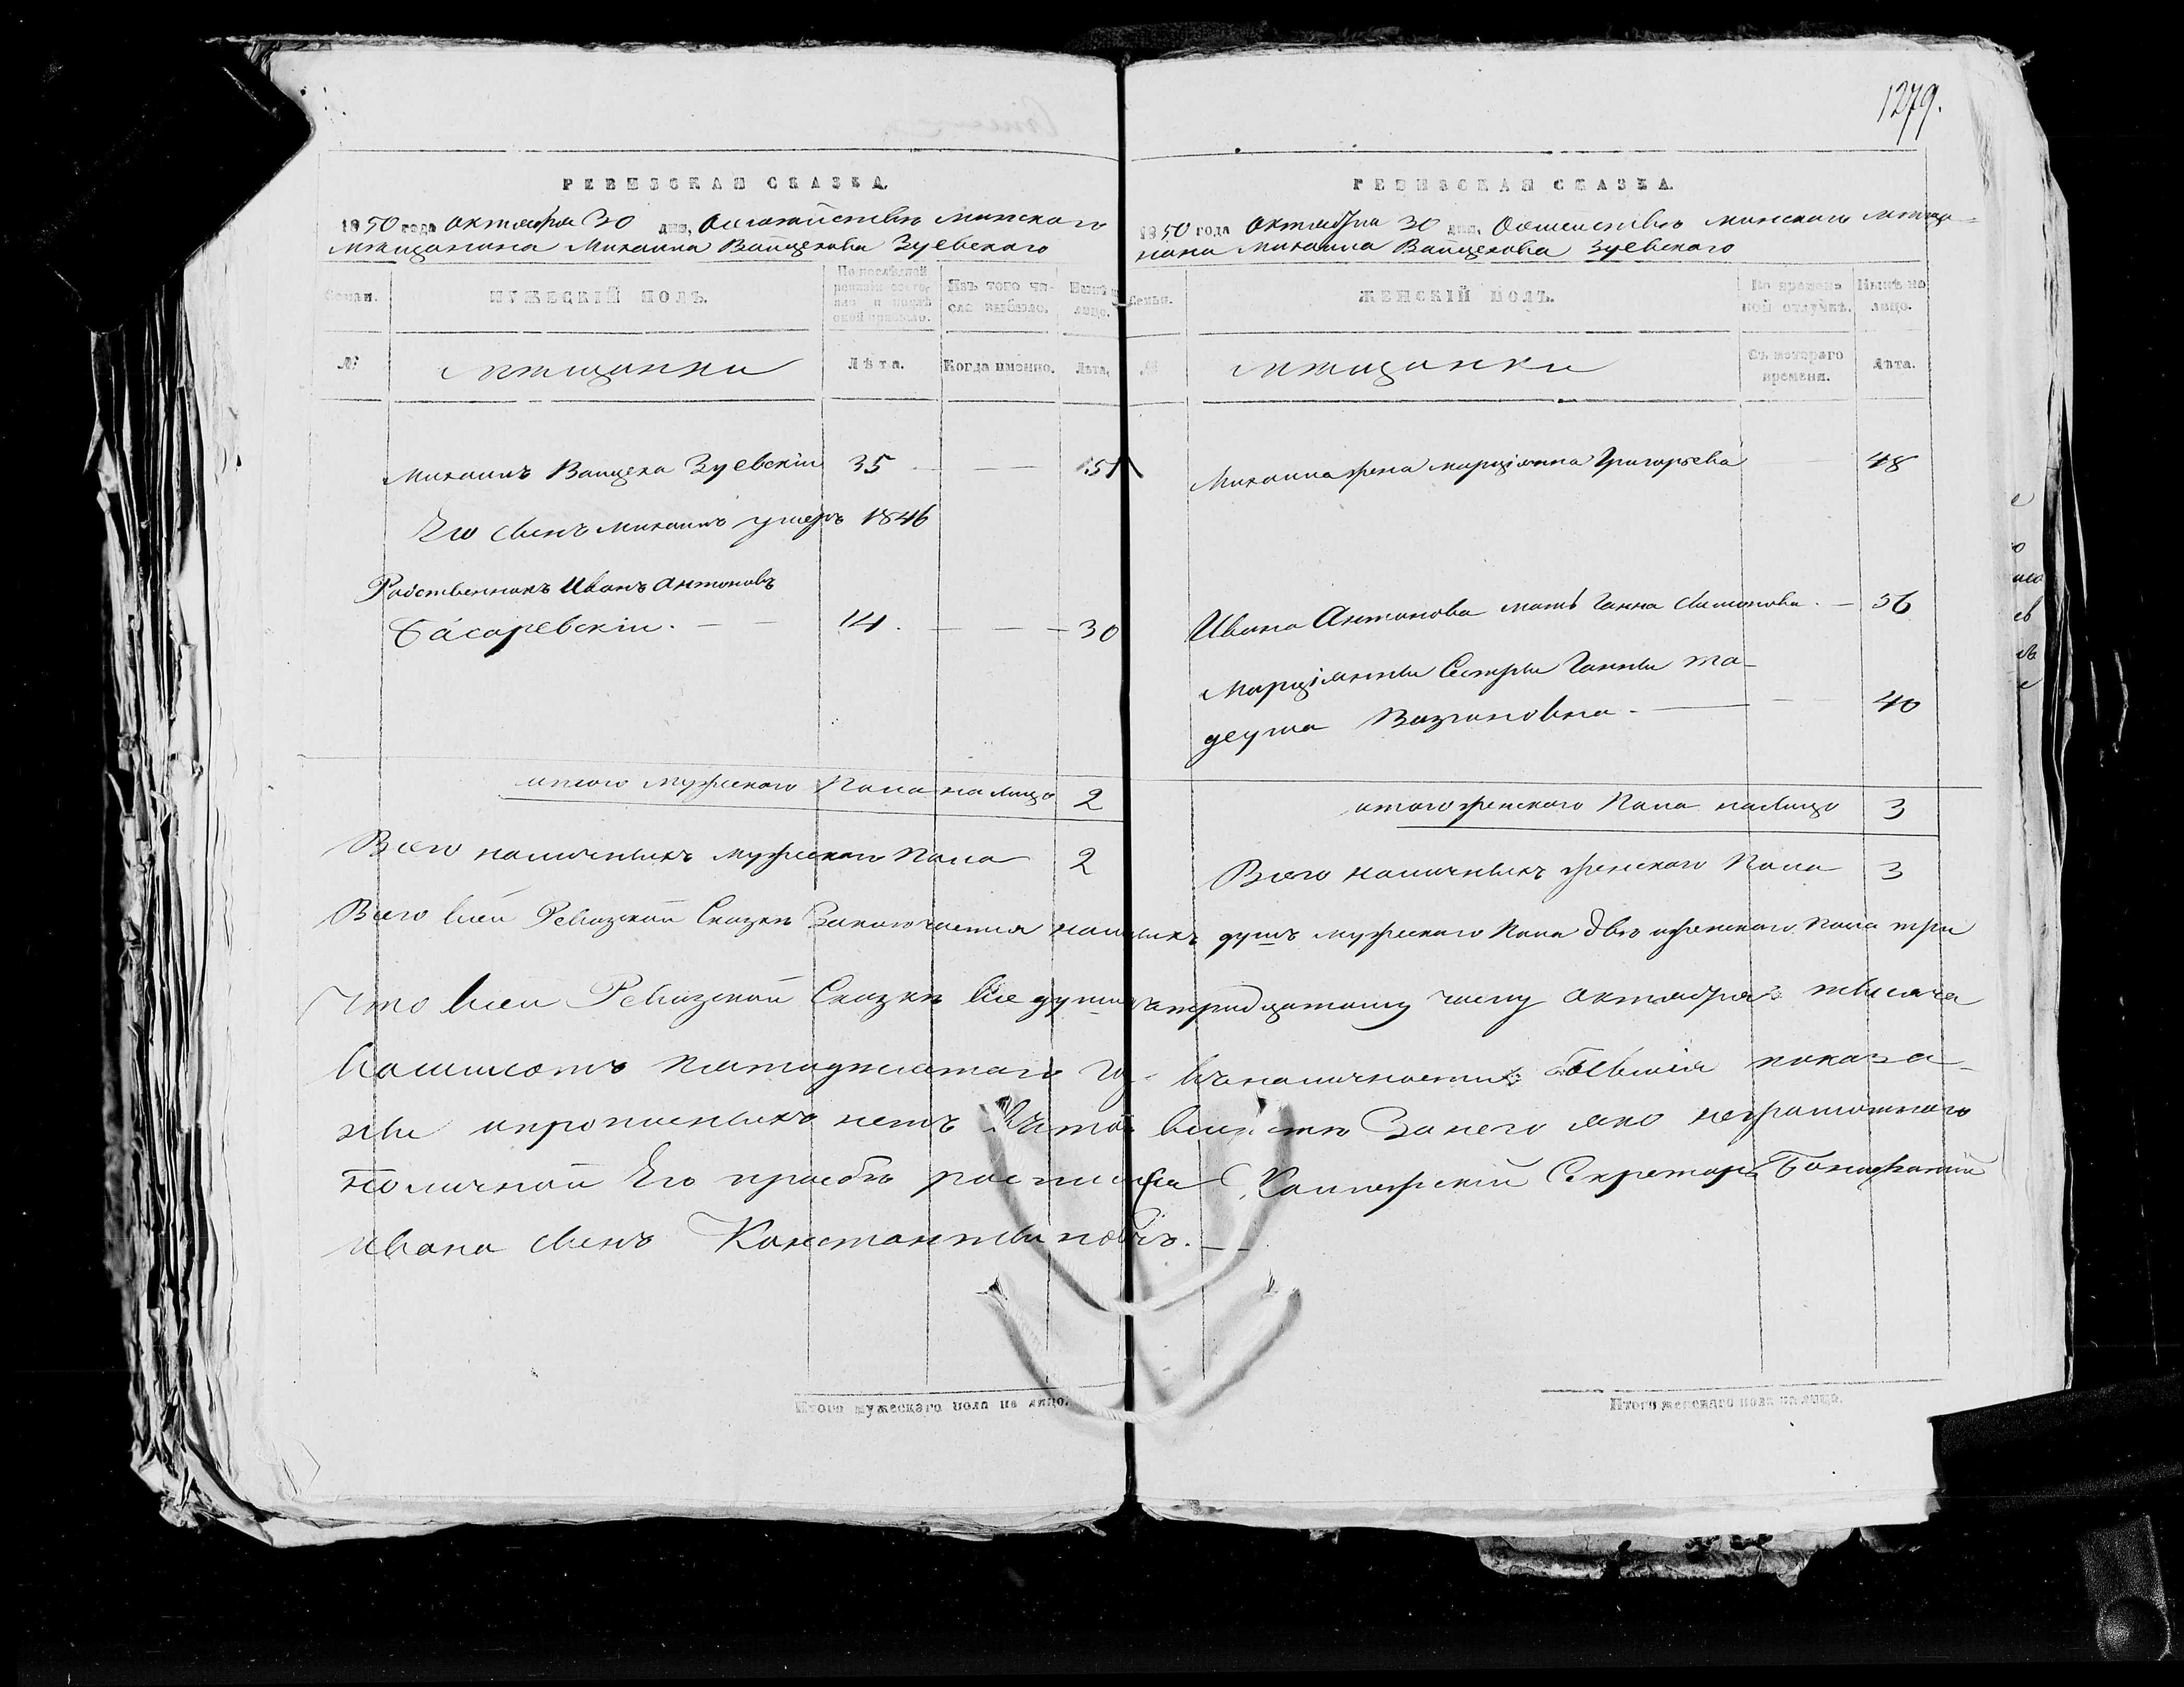 1279.
РЕВИЗСКАЯ СКАЗКА.
1850 года октября 30 дня, О семействѣ минскаго
мѣщанина Михаила Вайцехова Зуевскаго
Семьи.
МУЖЕСКІЙ ПОЛЪ.
По послѣдней ревизіи состояло и послѣ оной прибыло.
Изъ того числа выбыло.
Нынѣ на лицо.
№
мѣщанки
Лѣта.
Когда именно.
Лѣта.
Михаилъ Вайцеха Зуевскій 35 — 51
Его сынъ Михаилъ умеръ 1846
Родственникъ Иванъ Антоновъ
Басаревскій. — 14. — 30
итого мужеского Пола на лицо 2
Всего наличныхъ мужеского Пола 2
РЕВИЗСКАЯ СКАЗКА.
1850 года Октября 30 дня, О семействѣ минскаго мѣща-
нина Михаила Вайцехова Зуевскаго
Семьи.
ЖЕНСКІЙ ПОЛЪ.
Во временной отлучкѣ.
Нынѣ на лицо.
№
мѣщанки
Съ котораго времени.
Лѣта.
Михаила жена Марціянна Григорьева 48
Ивана Антонова мать Ганна Симонова. — 56
Марціянны Сестры Ганны
40
итого женскаго Пола налицо 3
Всего наличныхъ женскаго Пола 3
Всего всей Ревизской Сказкѣ Заключается душъ мужеского Пола двѣ и женскаго пола три
Что всей Ревизской Сказкѣ все души тридцатому числу октября тысяча
восимсотъ пятидесятаго въ наличности бывшія показа-
ны и прописныхъ нетъ въ томъ За него яко неграмотнаго
поличной Его прозбѣ росписался Коллежскій Секретарь Бонифатій
Ивана сынъ Константиновъ. —
Итого мужескаго пола на лицо.
Итого женскаго пола на лицо.